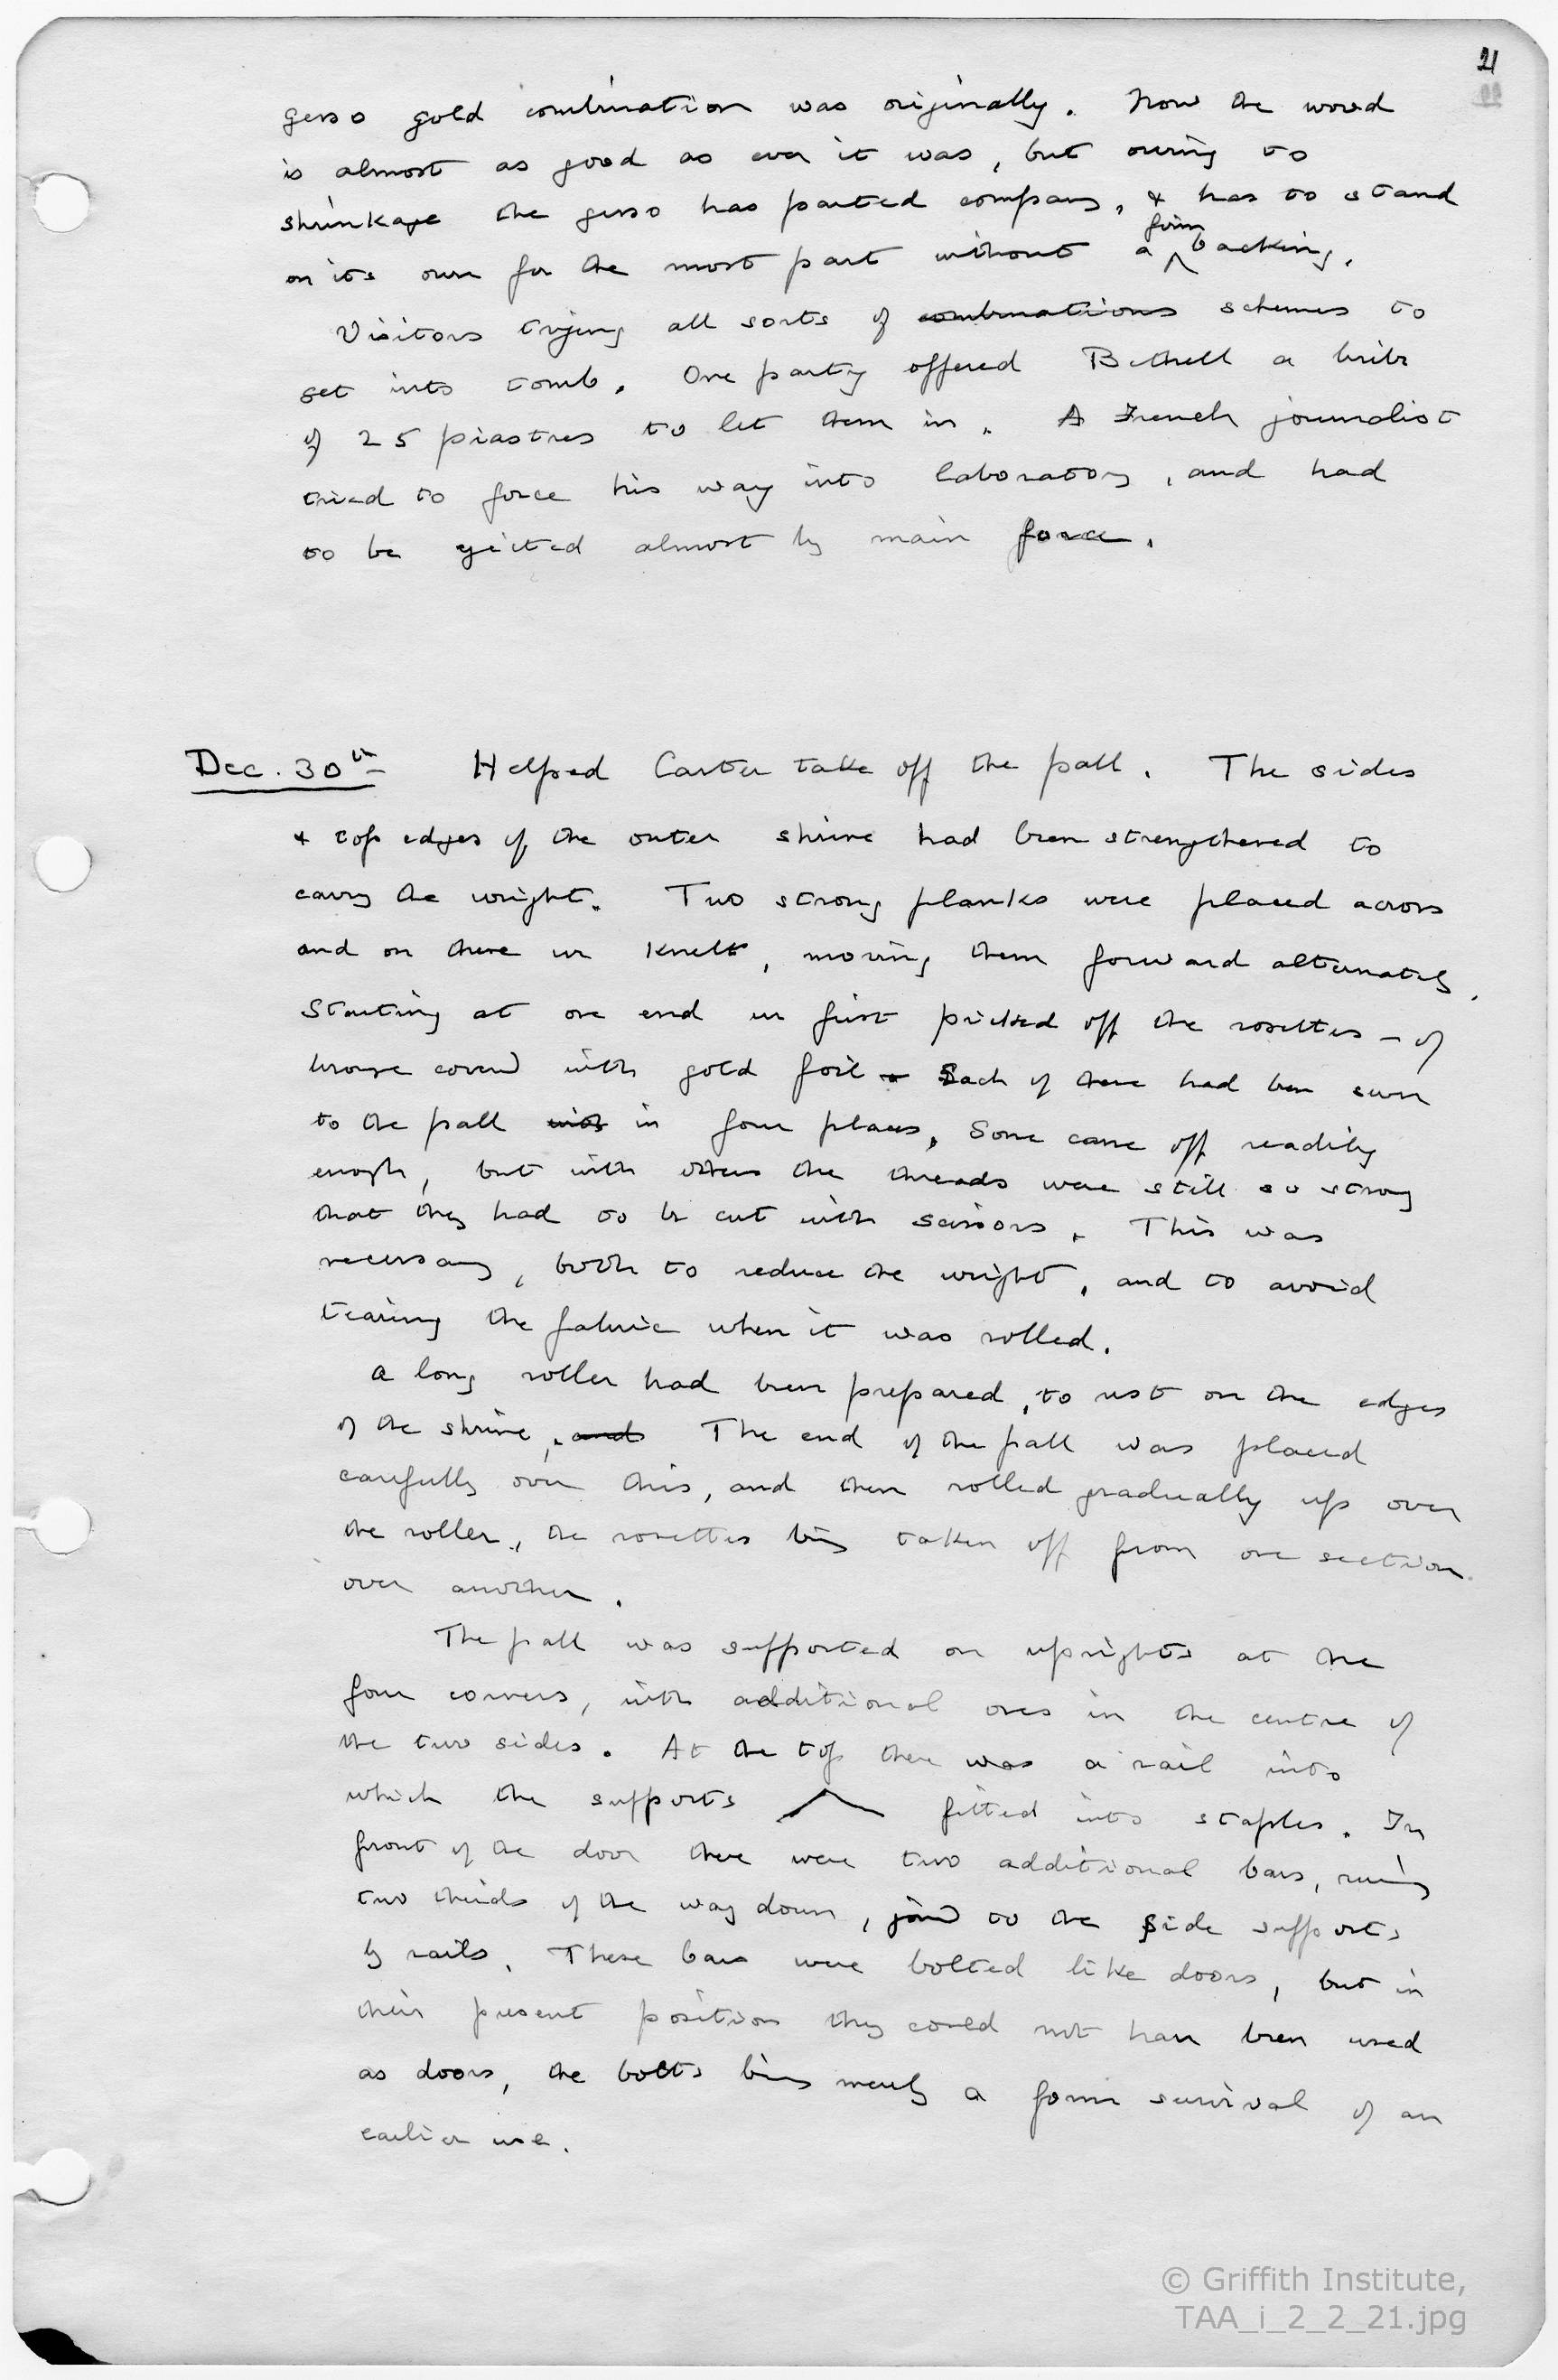 21
gesso gold combination was originally. Now the wood
is almost as good as ever it was, but owing to
shrinkage the gesso has parted company, & has to stand
on its own for the most part without a firm backing.
Visitors trying all sorts of combinations schemes to
get into tomb. One party offered Bethell a bribe
of 25 piastres to let them in. A French journalist
tried to force his way into laboratory, and had
to be ejected almost by main force.
Dec. 30th Helped Carter take off the pall. The sides
& top edges of the outer shrine had been strengthened to
carry the weight. Two strong planks were placed across
and on these we knelt, moving them forward alternately.
Starting at one end we first picked off the rosettes – of
bronze covered with gold foil. Each of these had been sewn
to the pall with in four places. Some came off readily
enough, but with others the threads were still so strong
that they had to be cut with scissors. This was
necessary, both to reduce the weight, and to avoid
tearing the fabric when it was rolled.
A long roller had been prepared, to rest on the edges
of the shrine, and The end of the pall was placed
carefully over this, and then rolled gradually up over
the roller, the rosettes being taken off from one section
over another.
The pall was supported on uprights at the
four corners, with additional ones in the centre of
the two sides. At the top there was a rail into
which the supports fitted into staples. In
front of the door there were two additional bars, running
two thirds of the way down, joined to the side supports
by rails. These bars were bolted like doors, but in
their present position they could not have been used
as doors, the bolts being merely a form survival of an
earlier use.
© Griffith Institute,
TAA_i_2_2_21.jpg